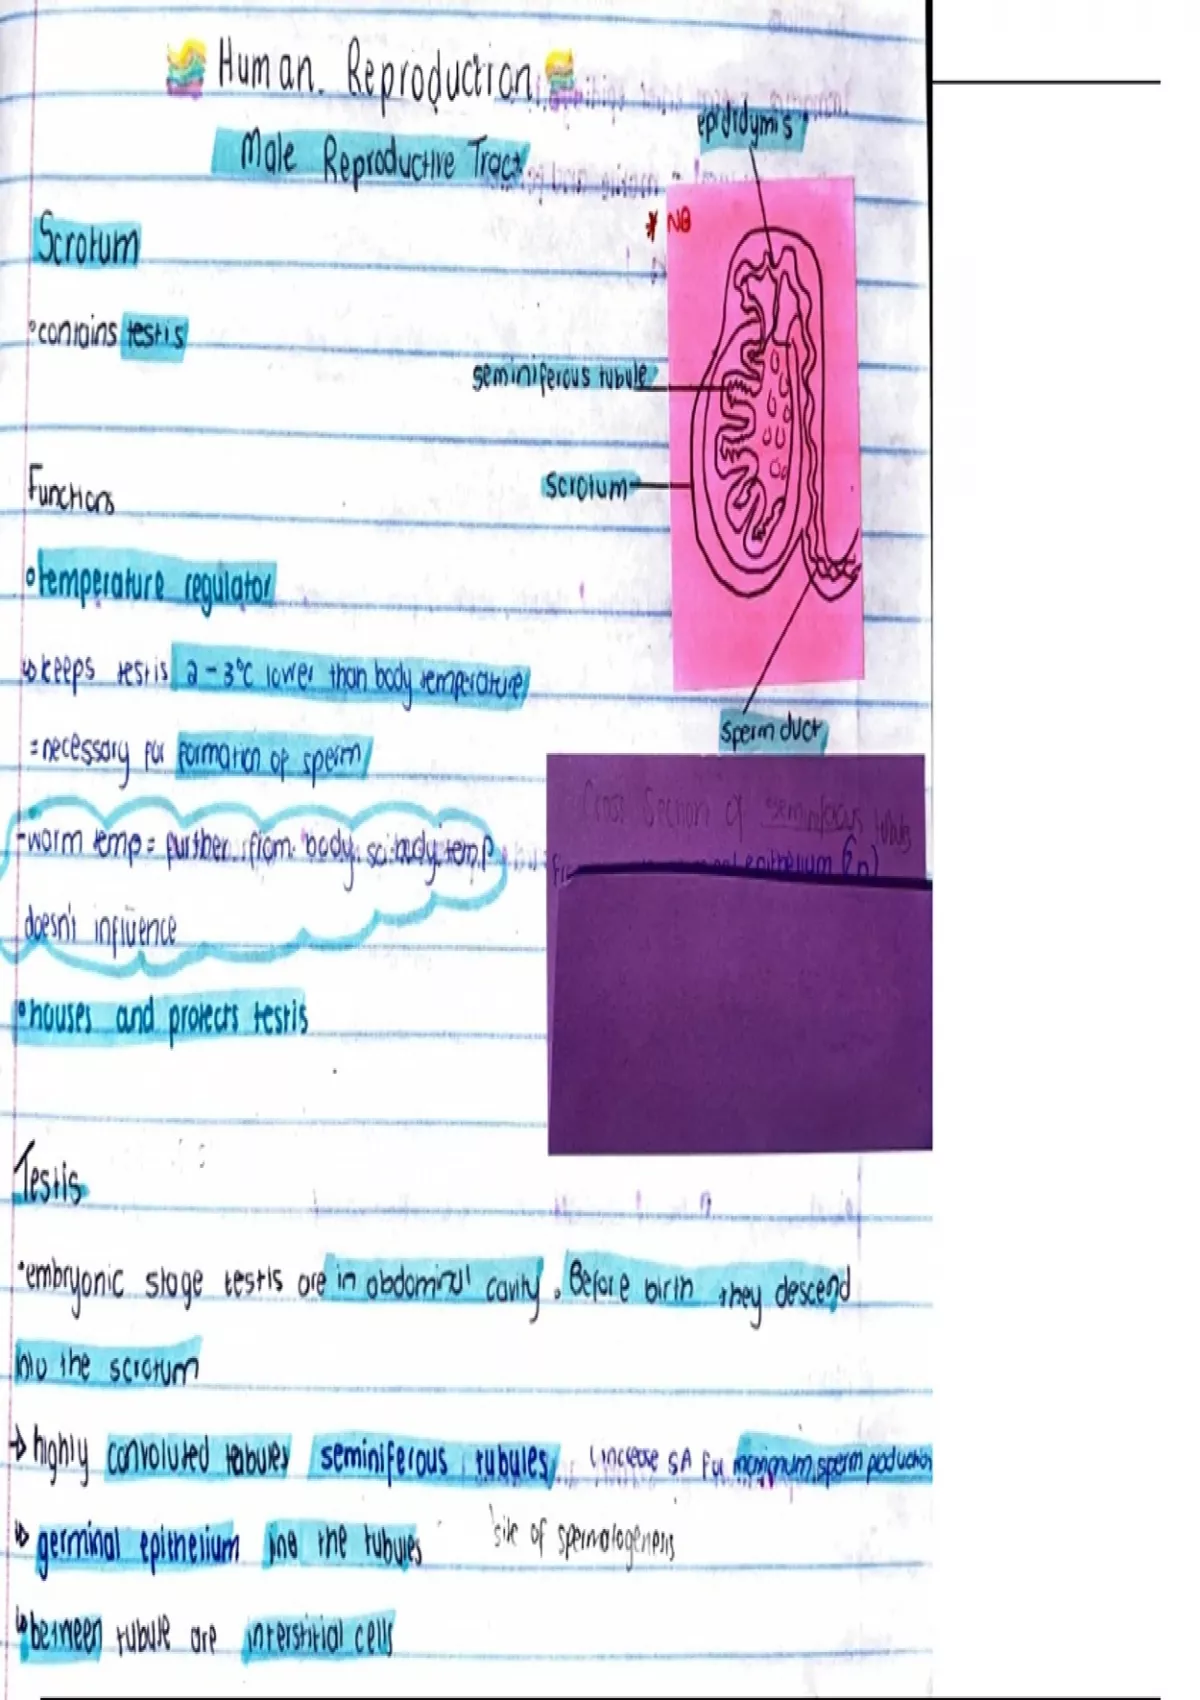 Human Reproduction
Male Reproductive Tract
epididymis
Scrotum
* NB
°contains testis
seminiferous tubule
scrotum
Functions
°temperature regulator
↳keeps testis 2-3°C lower than body temperature
sperm duct
=necessary for formation of sperm
Cross Section of seminiferous tubule
-warm temp = further from body so body temp
epithelium (2n)
doesn't influence
°houses and protects testis
Testis
°embryonic stage testis are in abdominal cavity. Before birth they descend
into the scrotum
→highly convoluted tubules seminiferous tubules (increase SA for maximum sperm production
↳ germinal epithelium line the tubules
site of spermatogenesis
↳between tubule are interstitial cells